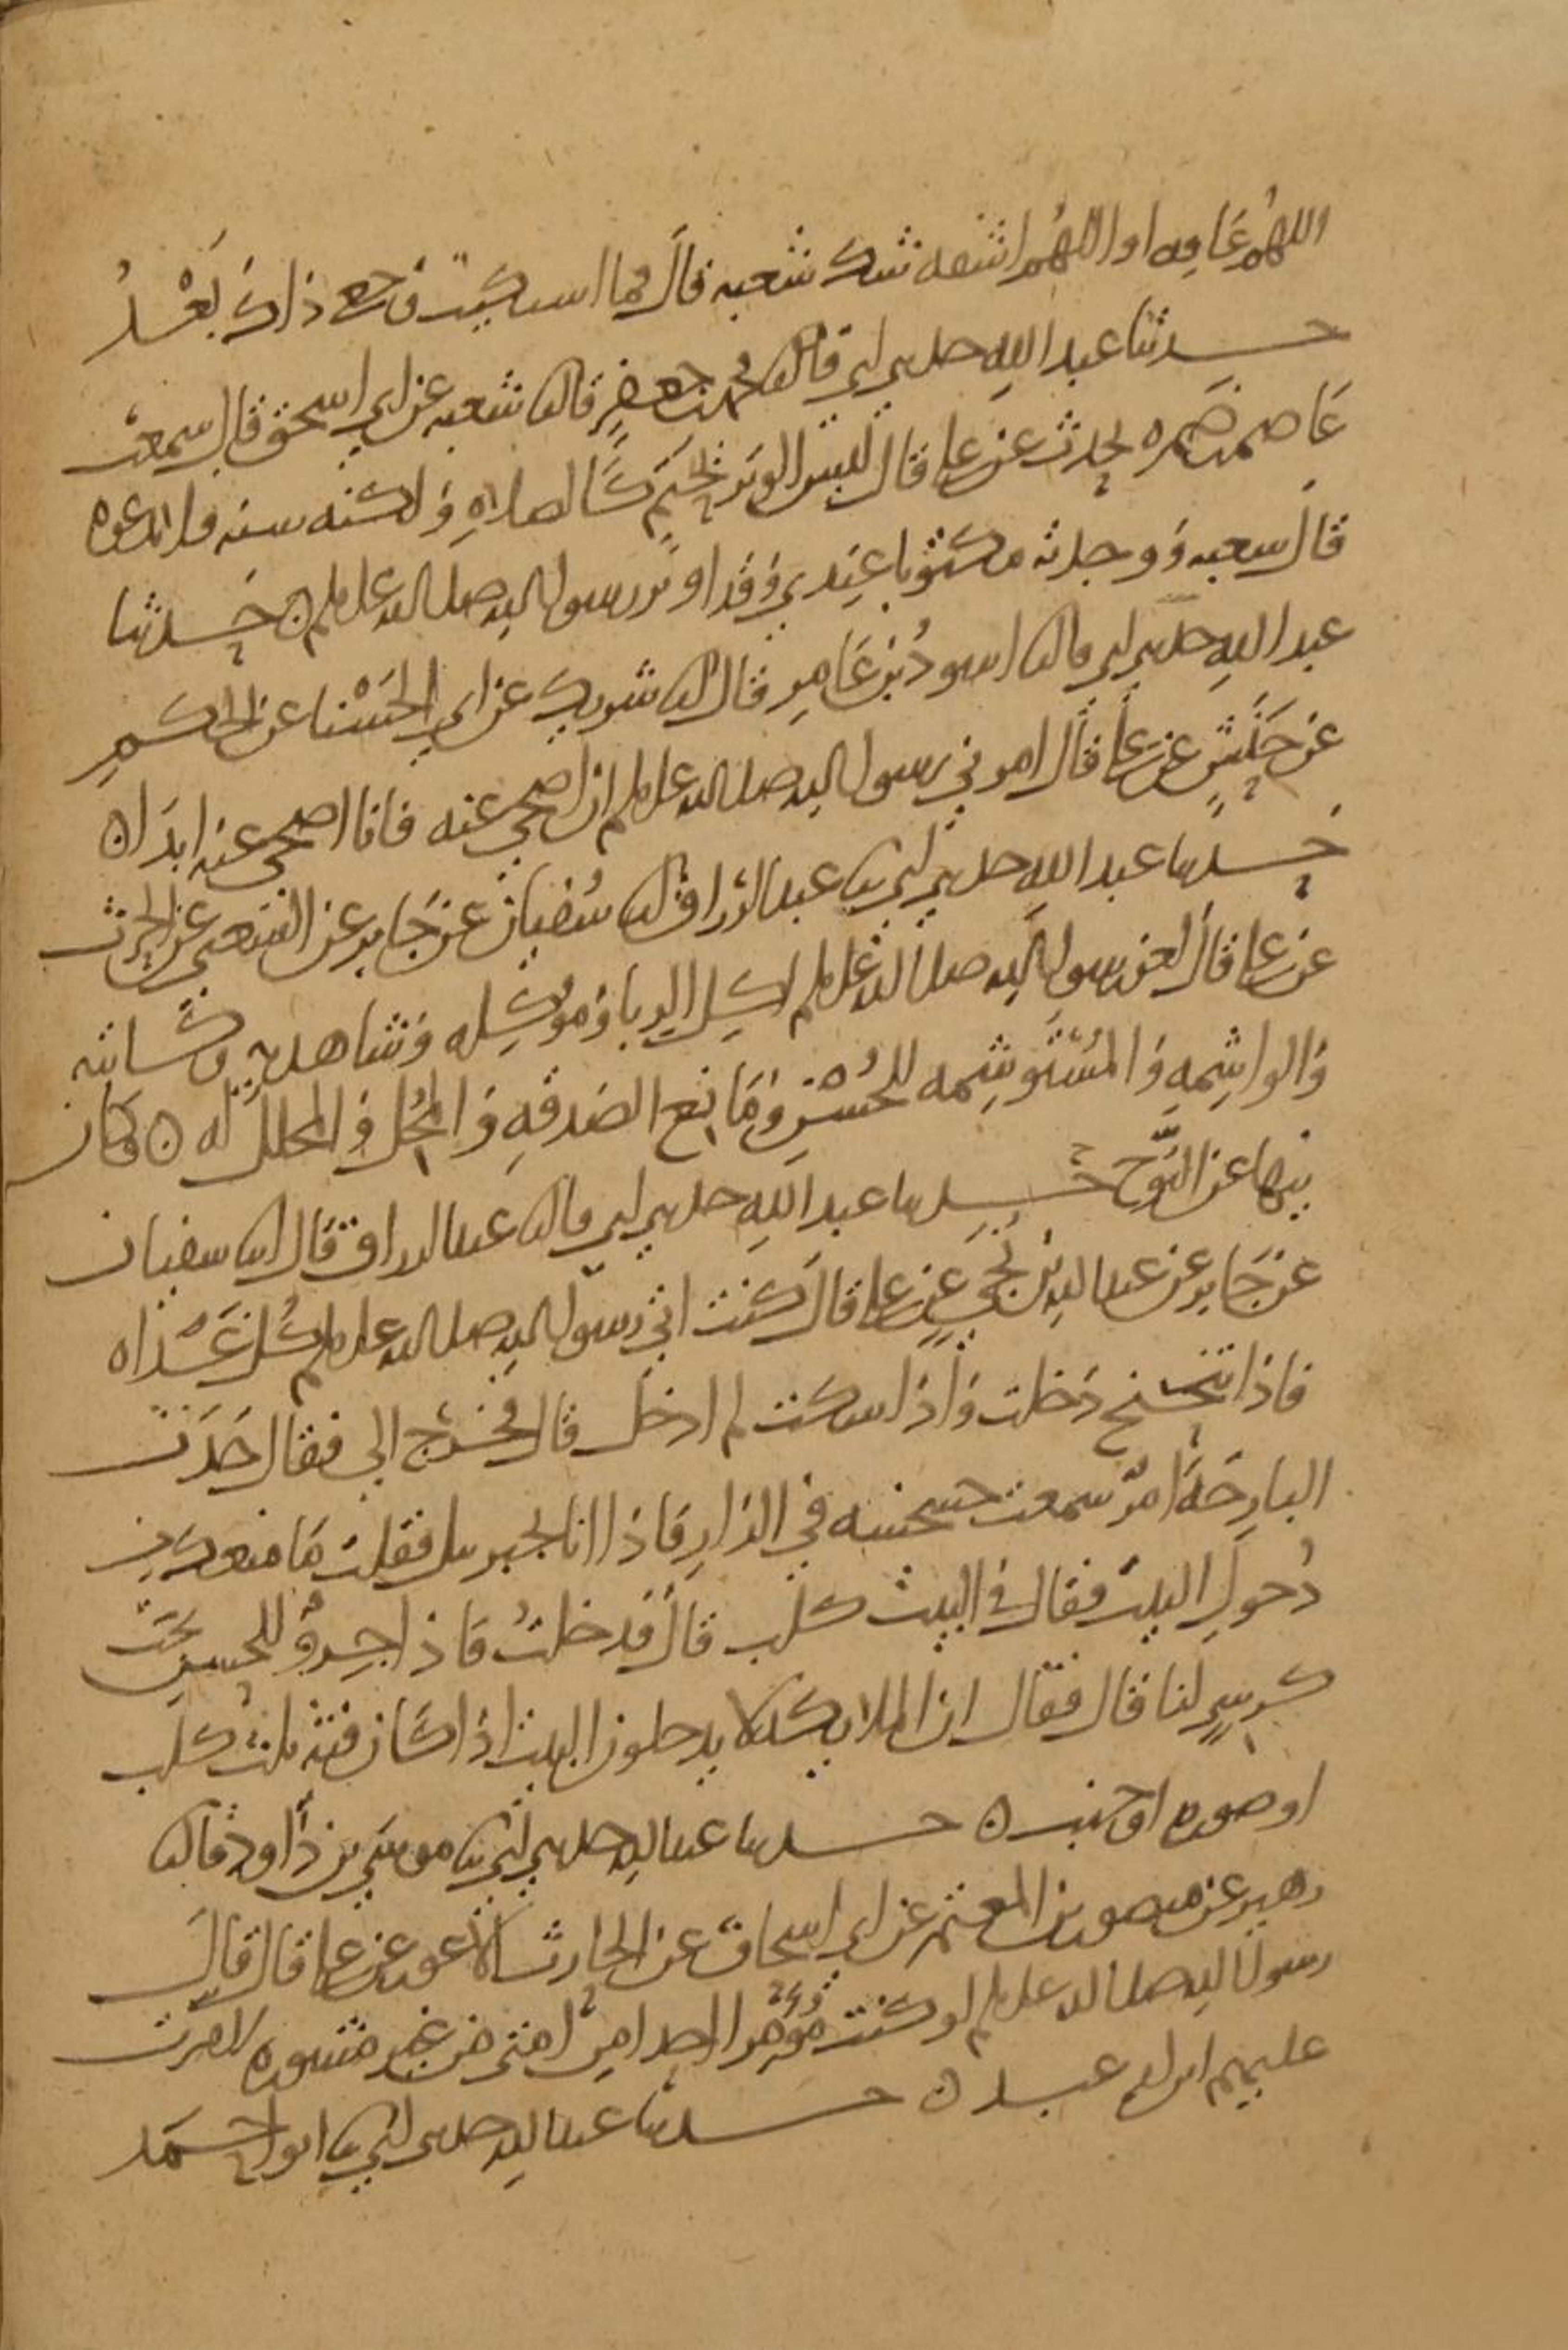 اللهم عافه او اللهم اشفه شك شعبه قال فما اشتكيت وجعي ذاك بعد
حدثنا عبد الله حدثني ابي قال ثنا محمد بن جعفر قال ثنا شعبه عن ابي اسحق قال سمعت
عاصم بن ضمره يحدث عن علي قال ليس الوتر بحتم كالصلاه ولكنه سنه فلا تدعوه
قال شعبه ووجدته مكتوبا عندي وقد اوتر رسول الله صلى الله عليه وسلم ن حدثنا
عبد الله حدثني ابي قال ثنا اسود بن عامر قال ثنا شريك عن ابي الحسنا عن الحكم
عن حنش عن علي قال امرني رسول الله صلى الله عليه وسلم ان اضحي عنه فانا اضحي عنه ابدا ن
حدثنا عبد الله حدثني ابي ثنا عبد الرزاق ثنا سفيان عن جابر عن الشعبي عن الحرث
عن علي قال لعن رسول الله صلى الله عليه وسلم اكل الربا وموكله وشاهديه وكاتبه
والواشمه والمستوشمه للحسن ومانع الصدقه والمحل والمحلل له ن وكان
ينها عن النوح حدثنا عبد الله حدثني ابي قال ثنا عبد الرزاق قال انا سفيان
عن جابر عن عبد الله بن نجي عن علي قال كنت اتي رسول الله صلى الله عليه وسلم كل غداه
فاذا تنحنح دخلت واذا سكت لم ادخل قال فخرج الي فقال حدث
البارحة امر سمعت خشخشه في الدار فاذا انا بجبريل فقلت ما منعك من
دخول البيت فقال في البيت كلب قال فدخلت فاذا جرو للحسين تحت
كرسي لنا قال فقال ان الملايكه لا يدخلون البيت اذا كان فيه ثلث كلب
او صوره او جنب ن حدثنا عبد الله حدثني ابي ثنا موسى بن داود قال ثنا
زهير عن منصور بن المعتمر عن ابي اسحاق عن الحارث الاعور عن علي قال قال
رسول الله صلى الله عليه وسلم لو كنت مؤمرا احدا من امتي من غير مشوره لامرت
عليهم ابن ام عبد ن حدثنا عبد الله حدثني ابي ثنا ابو احمد